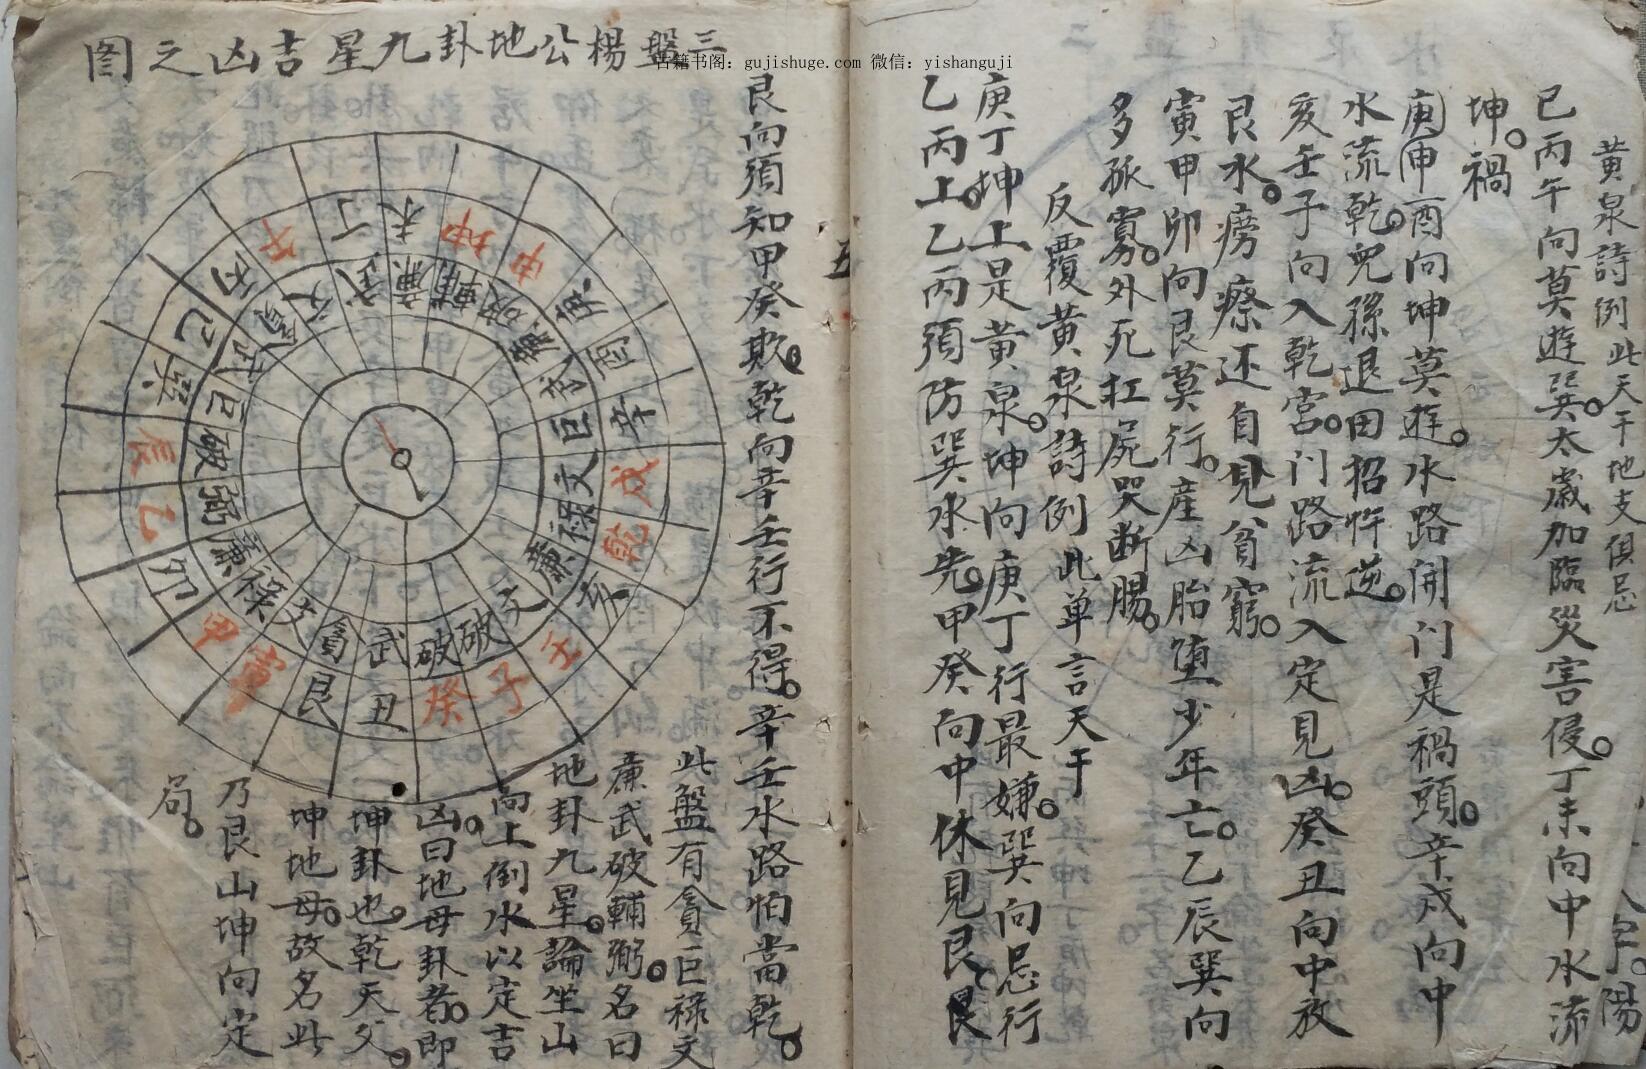 黃泉詩例此天干地支俱忌
巳丙午向莫遊巽太歲加臨災害侵丁未向中水流
坤禍
庚申酉向坤莫遊水路開门是禍頭辛戍向中
水流乾兒孫退田招忤逆
亥壬子向入乾宮门路流入定見凶癸丑向中放
艮水癆瘵还自見貧窮
寅甲卯向艮莫行產凶胎堕少年亡乙辰巽向
多孤寡外死扛屍哭断腸
反覆黃泉詩例此单言天干
庚丁坤上是黃泉坤向庚丁行最嫌巽向忌行
乙丙上乙丙須防巽水先甲癸向中休見艮艮
古籍书阁：gujishuge.com 微信：yishanguji
五
艮向須知甲癸欺乾向辛壬行不得辛壬水路怕當乾
三盤楊公地卦九星吉凶之图
午
丁
未
坤
申
庚
酉
辛
戍
乾
亥
壬
子
癸
丑
艮
寅
甲
卯
乙
辰
巽
巳
丙
文
武
廉
輔
破
廉
武
巨
文
禄
廉
文
破
破
武
貪
文
禄
廉
弼
破
巨
武
貪
此盤有貪巨禄文
廉武破輔弼名曰
地卦九星論坐山
向上倒水以定吉
凶曰地母卦者即
坤卦也乾天父
坤地母故名此
乃艮山坤向定
局